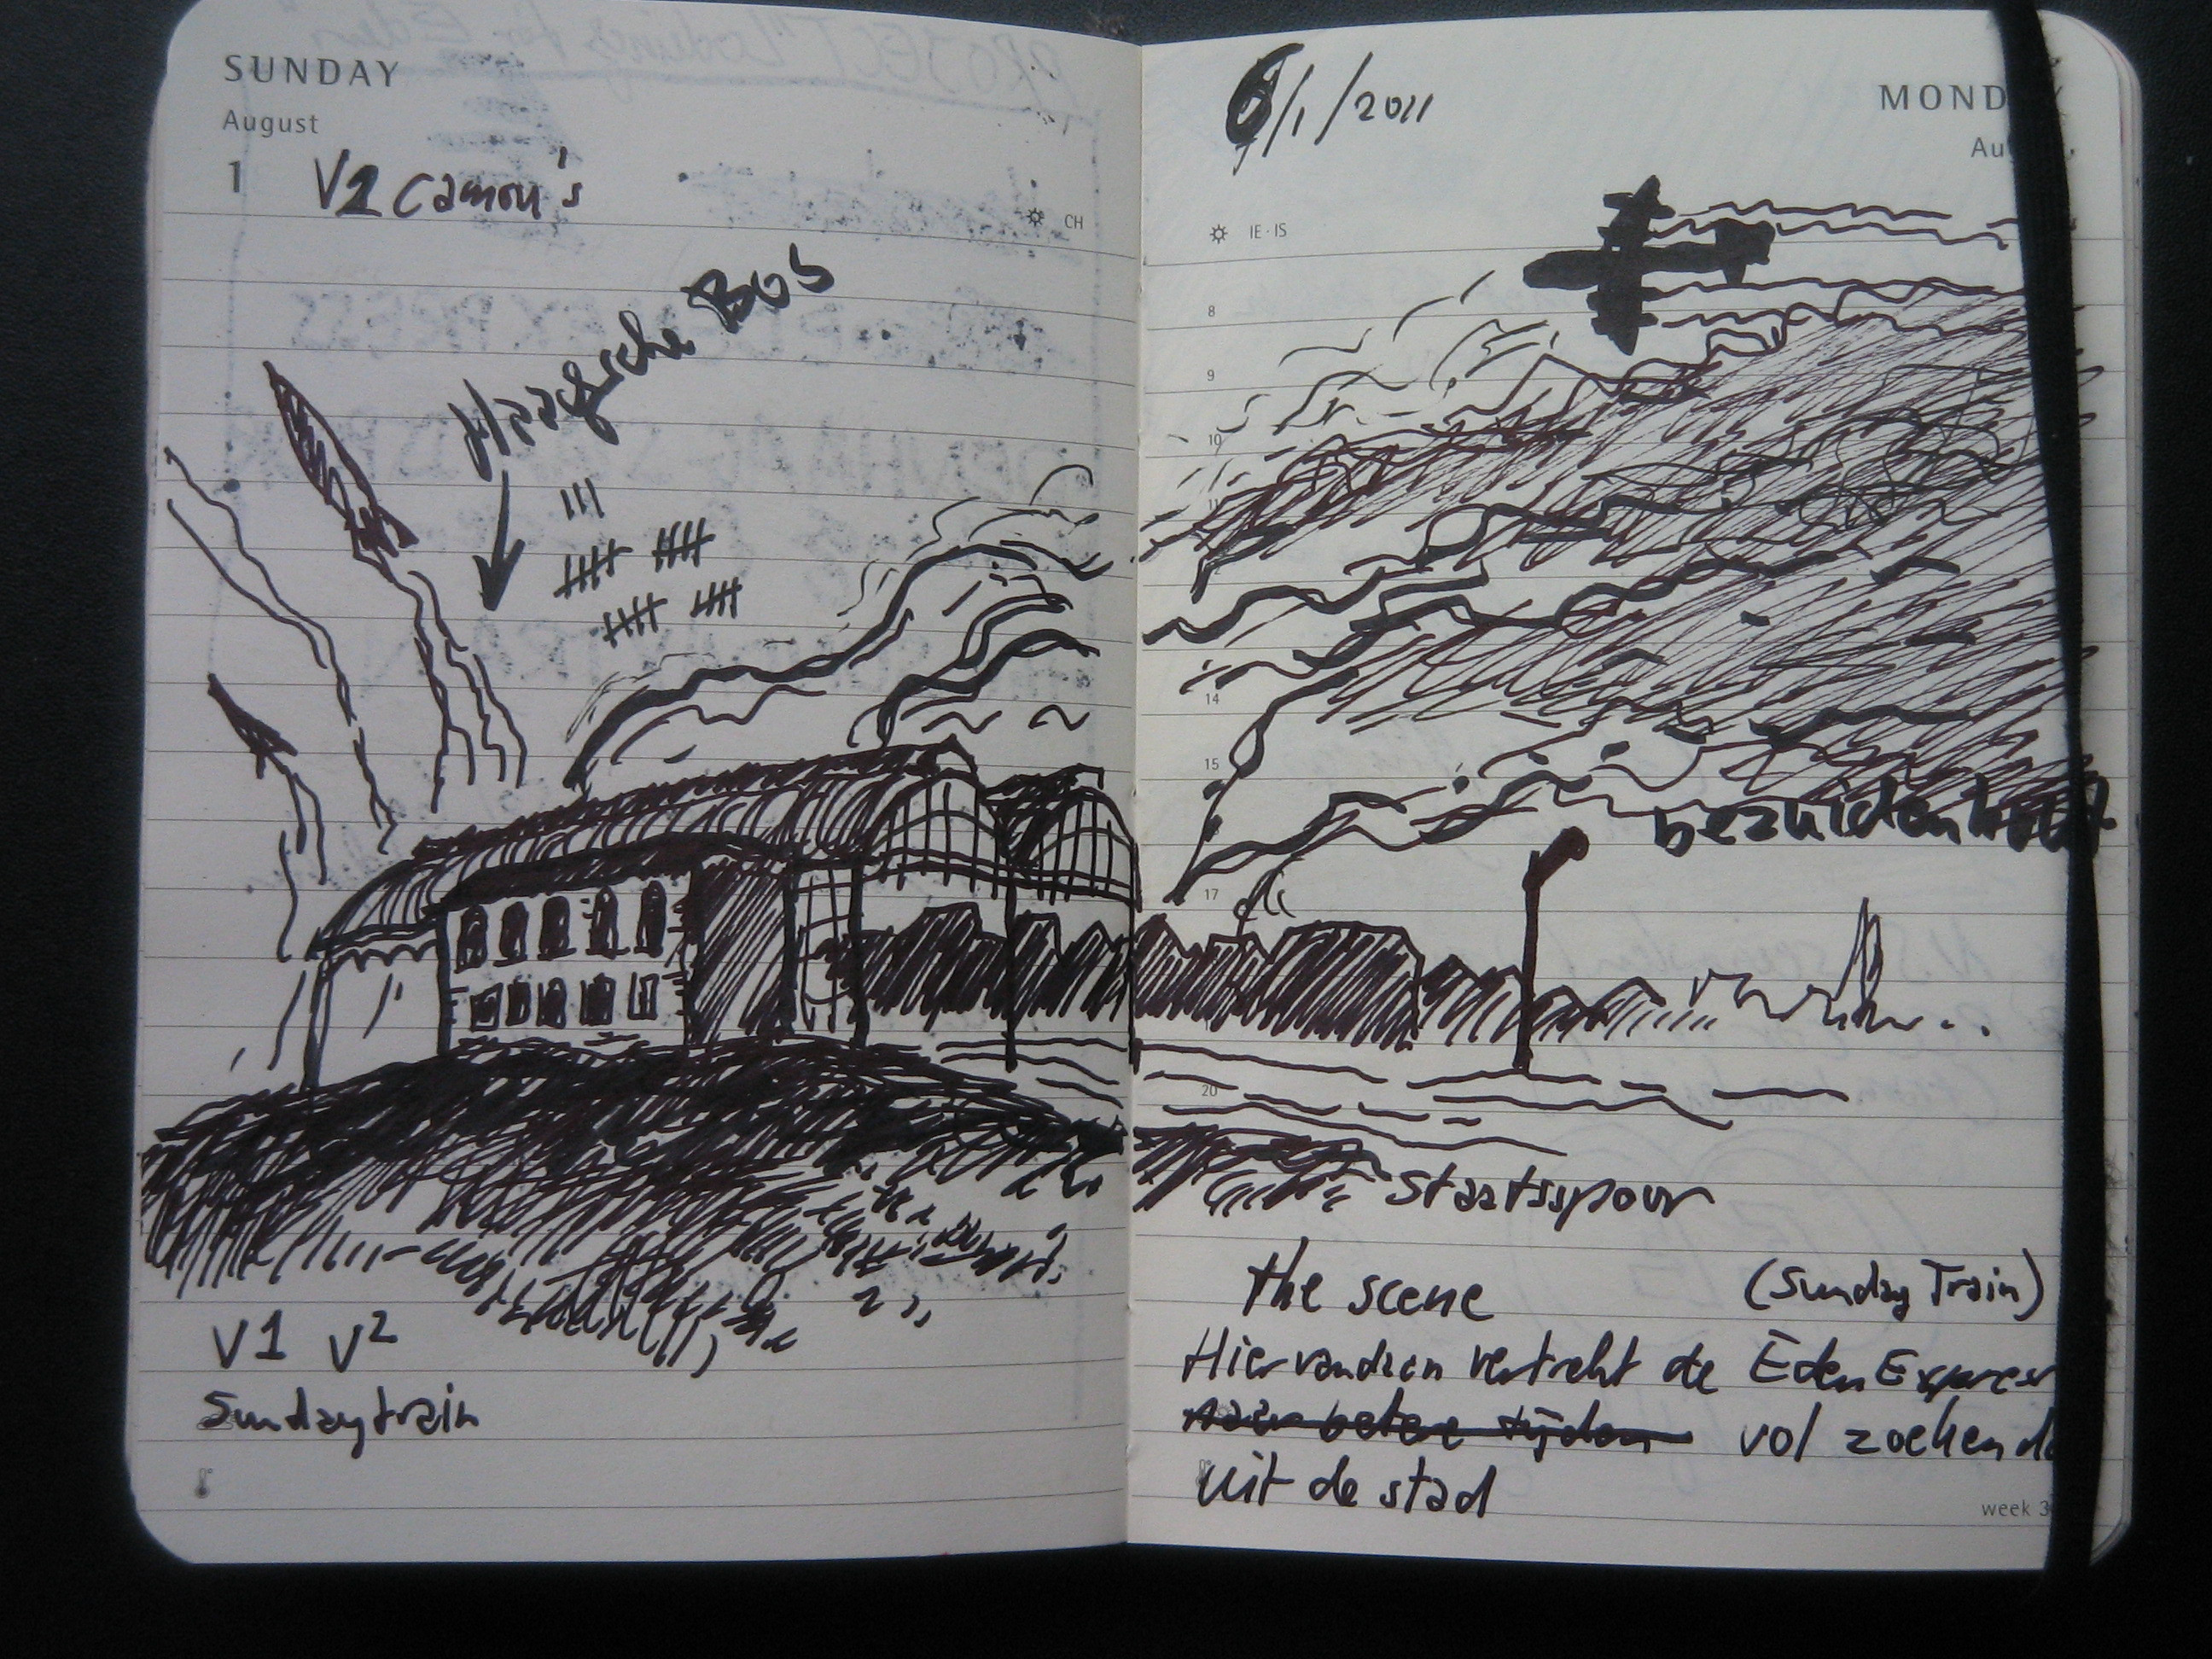 SUNDAY
August
1
V2 camon's
CH
Haagsche Bos
V1 V2
Sundaytrain
6/1/2011
MOND
Au
IE·IS
8
9
10
11
14
15
bezuidenhout
17
20
Staatsspoor
the scene (Sunday Train)
Hier vandaan vertrekt de Eden Expres
naar betere tijden vol zoekende
uit de stad
week 3